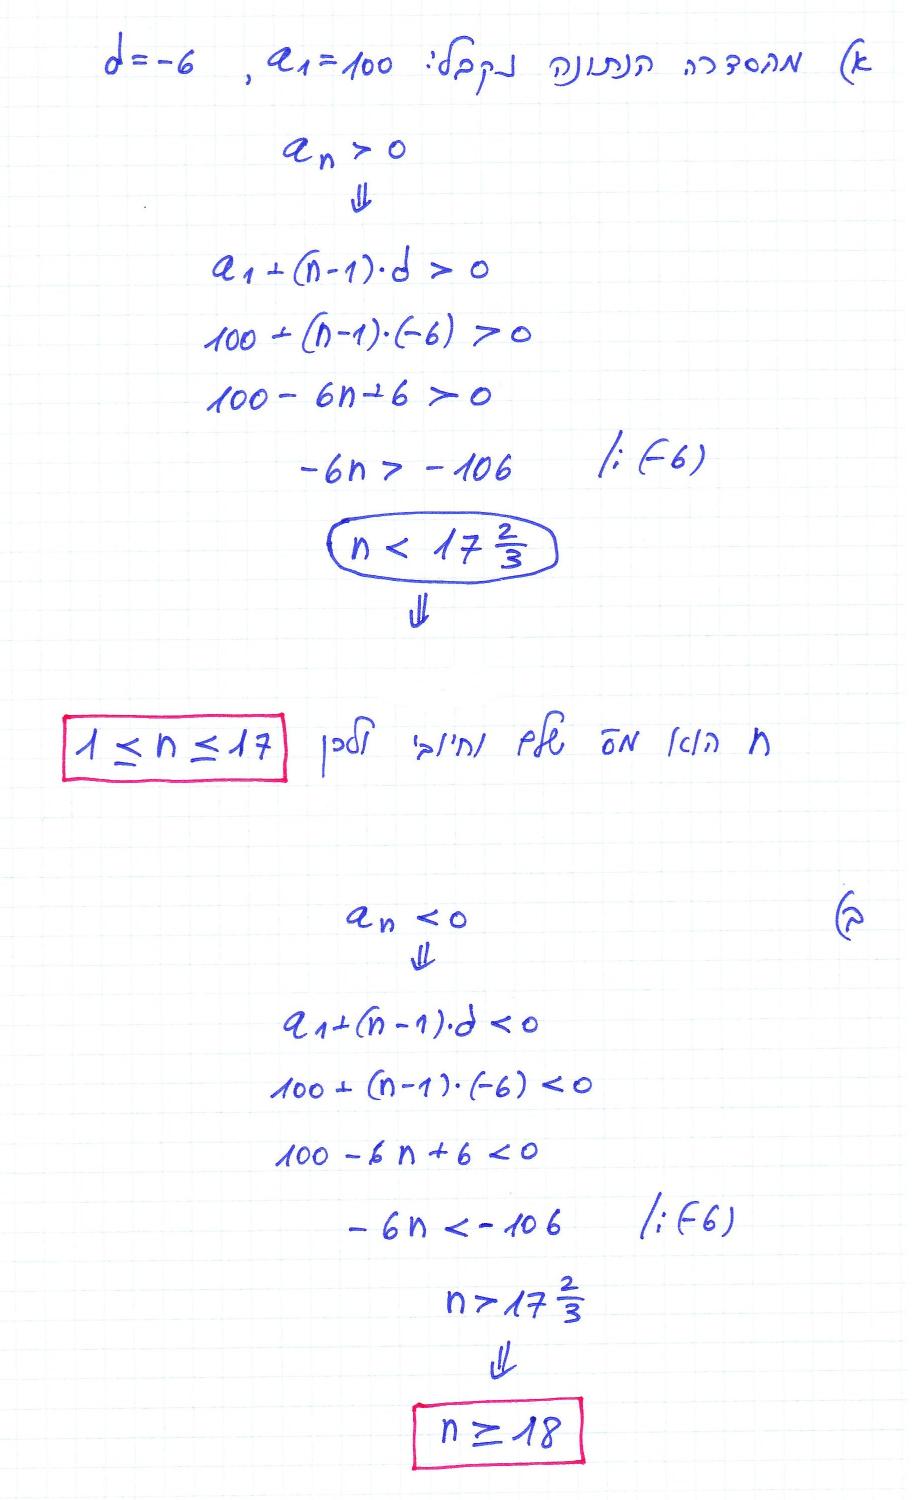 א) מהסדרה הנתונה נקבל: a₁ = 100 , d = -6
aₙ > 0
⇓
a₁ + (n-1)·d > 0
100 + (n-1)·(-6) > 0
100 - 6n + 6 > 0
-6n > -106 /:(-6)
n < 17 2/3
⇓
n הוא מס' שלם וחיובי ולכן 1 ≤ n ≤ 17
ב) aₙ < 0
⇓
a₁ + (n-1)·d < 0
100 + (n-1)·(-6) < 0
100 - 6n + 6 < 0
-6n < -106 /:(-6)
n > 17 2/3
⇓
n ≥ 18